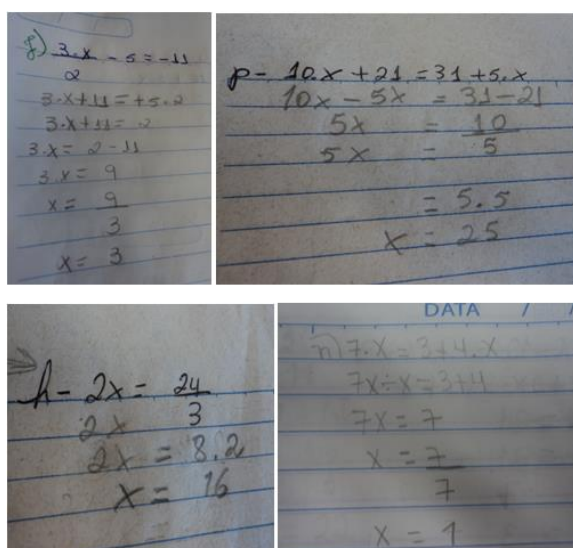 j) 3.x/2 - 5 = -11
3.x+11=+5.2
3.x+11= 2
3.x= 2-11
3.x= 9
x= 9/3
x= 3
p- 10.x+21=31+5.x
10x-5x = 31-21
5x = 10/5
5x =
= 5.5
x = 25
h- 2x= 24/3
2x
2x = 8.2
x = 16
DATA / /
n) 7.x=3+4.x
7x÷x=3+4
7x=7
x=7/7
x=1